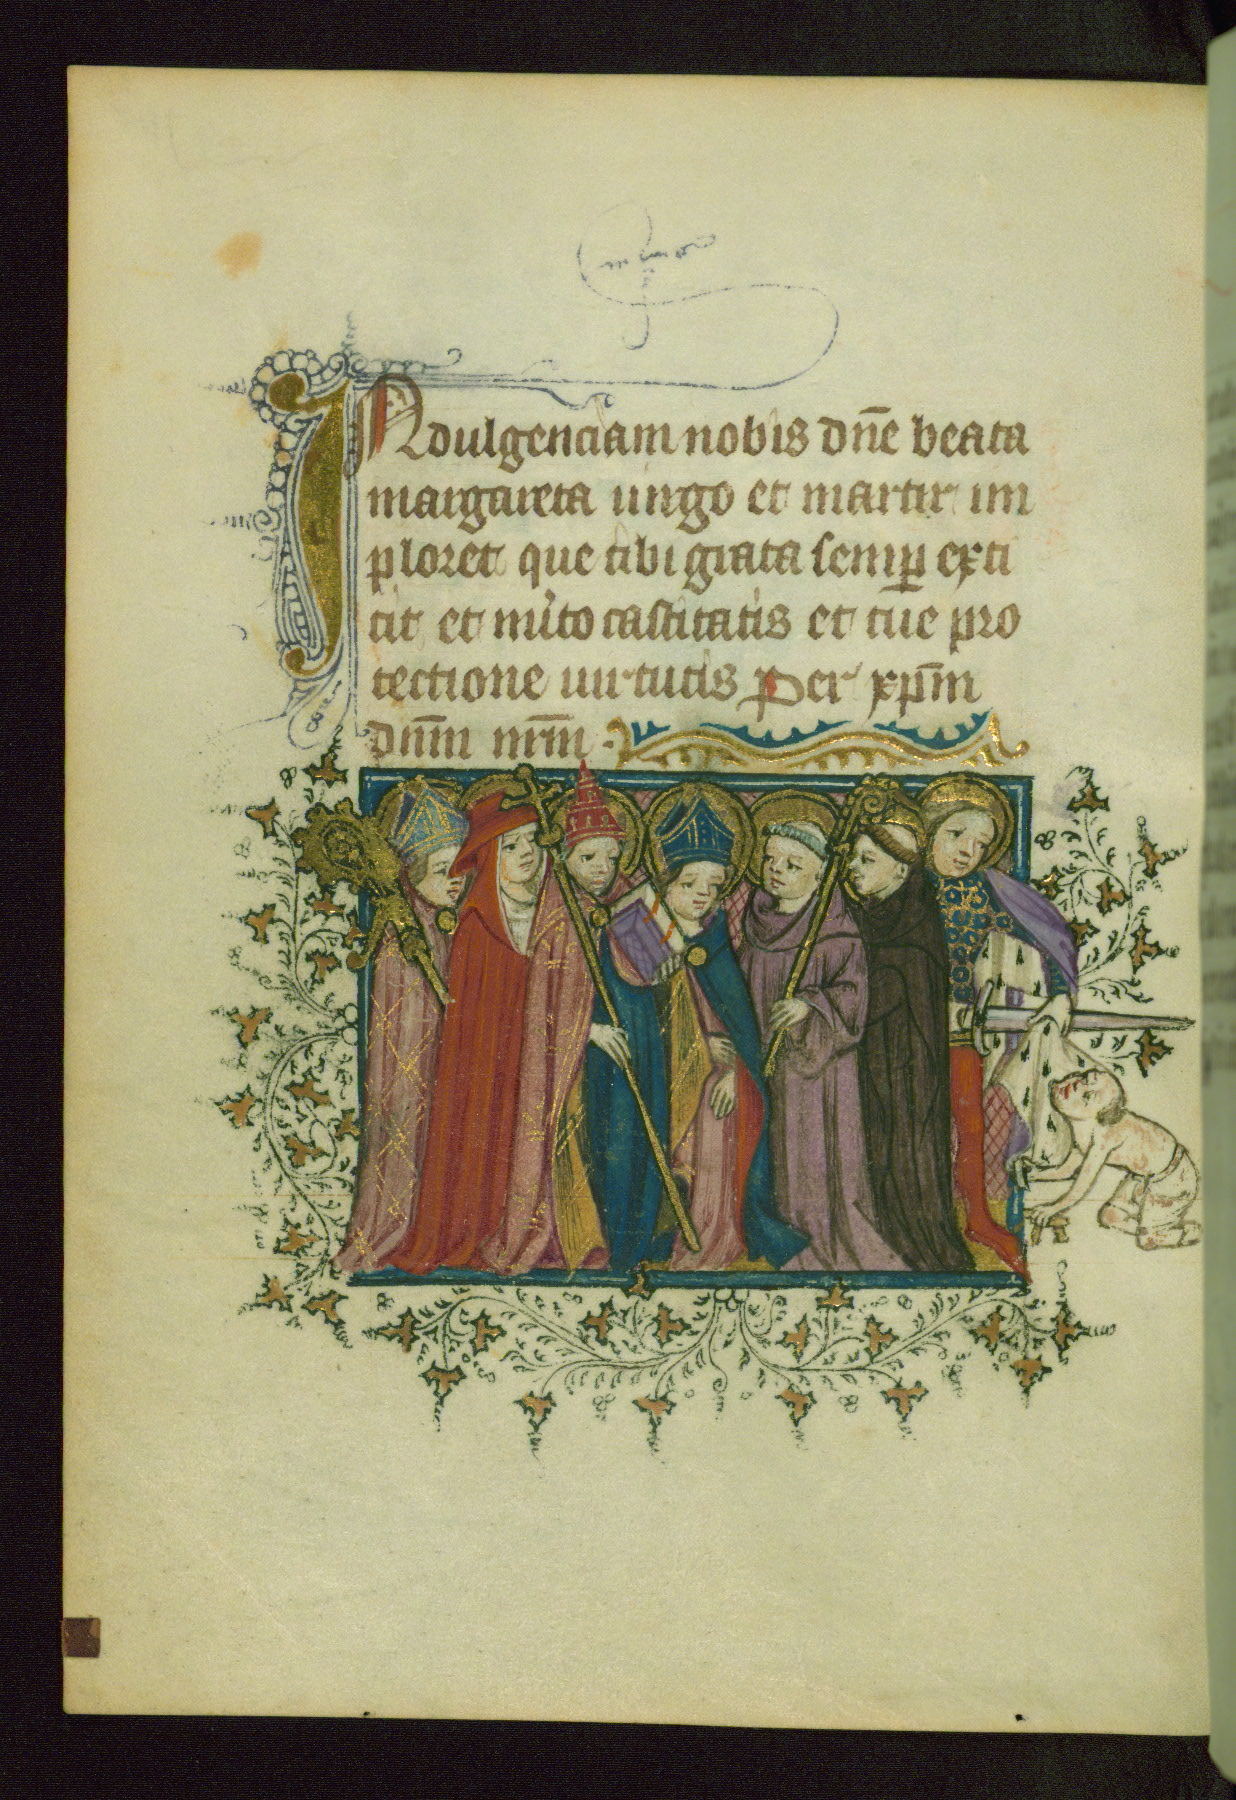 INdulgenciam nobis dn̄e beata
margareta uirgo et martir im
ploret que tibi grata semp̱ exti
tit et m̓ito castitatis et tue pro
tectione uirtutis Per xp̄m
dn̄m nr̄m.